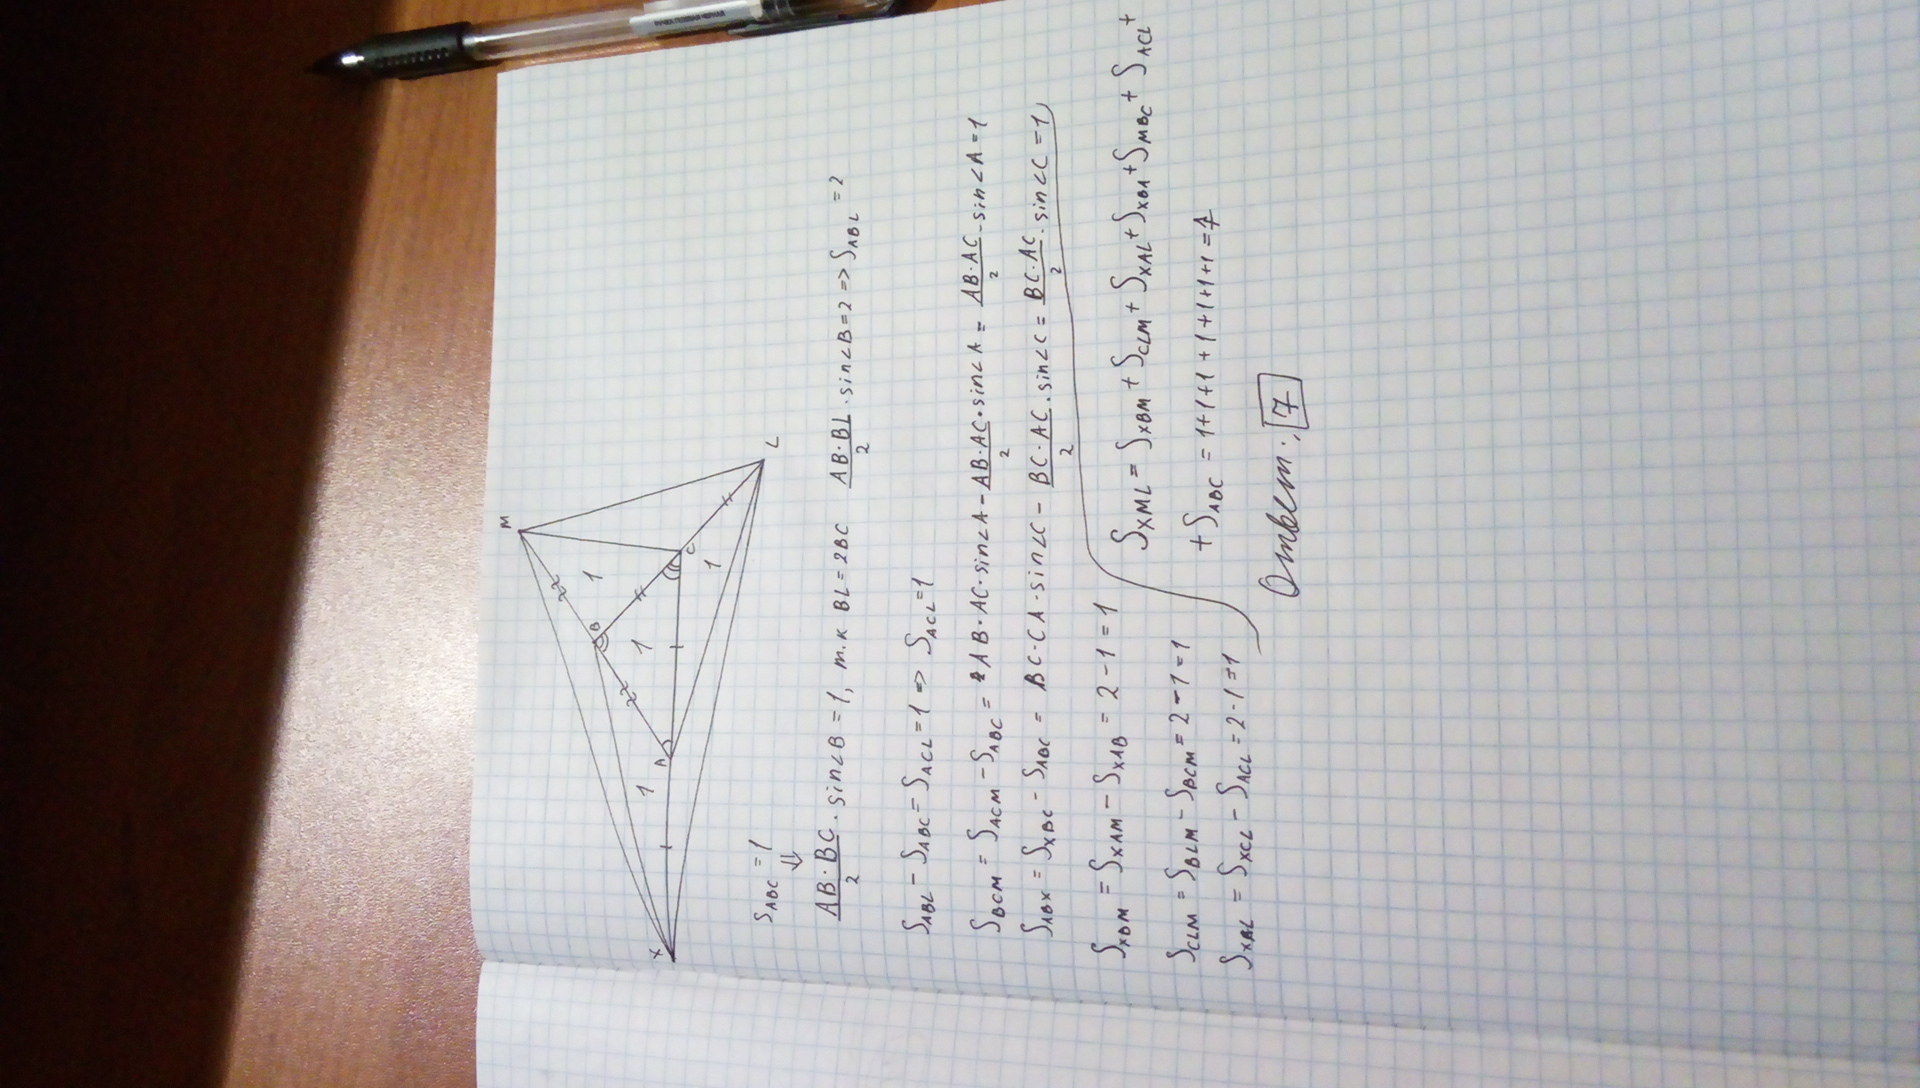 M
X
B
A
C
L
x
x
1
1
1
1
S_ABC = 1
⇓
AB·BC/2 · sin∠B = 1, т.к BL = 2BC AB·BL/2 · sin∠B = 2 => S_ABL = 2
S_ABL - S_ABC = S_ACL = 1 => S_ACL = 1
S_BCM = S_ACM - S_ABC = AB·AC·sin∠A - AB·AC/2 · sin∠A = AB·AC/2 · sin∠A = 1
S_ABX = S_XBC - S_ABC = BC·CA·sin∠C - BC·AC/2 · sin∠C = BC·AC/2 · sin∠C = 1
S_XBM = S_XAM - S_XAB = 2 - 1 = 1
S_CLM = S_BLM - S_BCM = 2 - 1 = 1
S_XAL = S_XCL - S_ACL = 2 - 1 = 1
S_XML = S_XBM + S_CLM + S_XAL + S_XBA + S_MBC + S_ACL +
+ S_ABC = 1+1+1+1+1+1+1 = 7
Ответ: 7